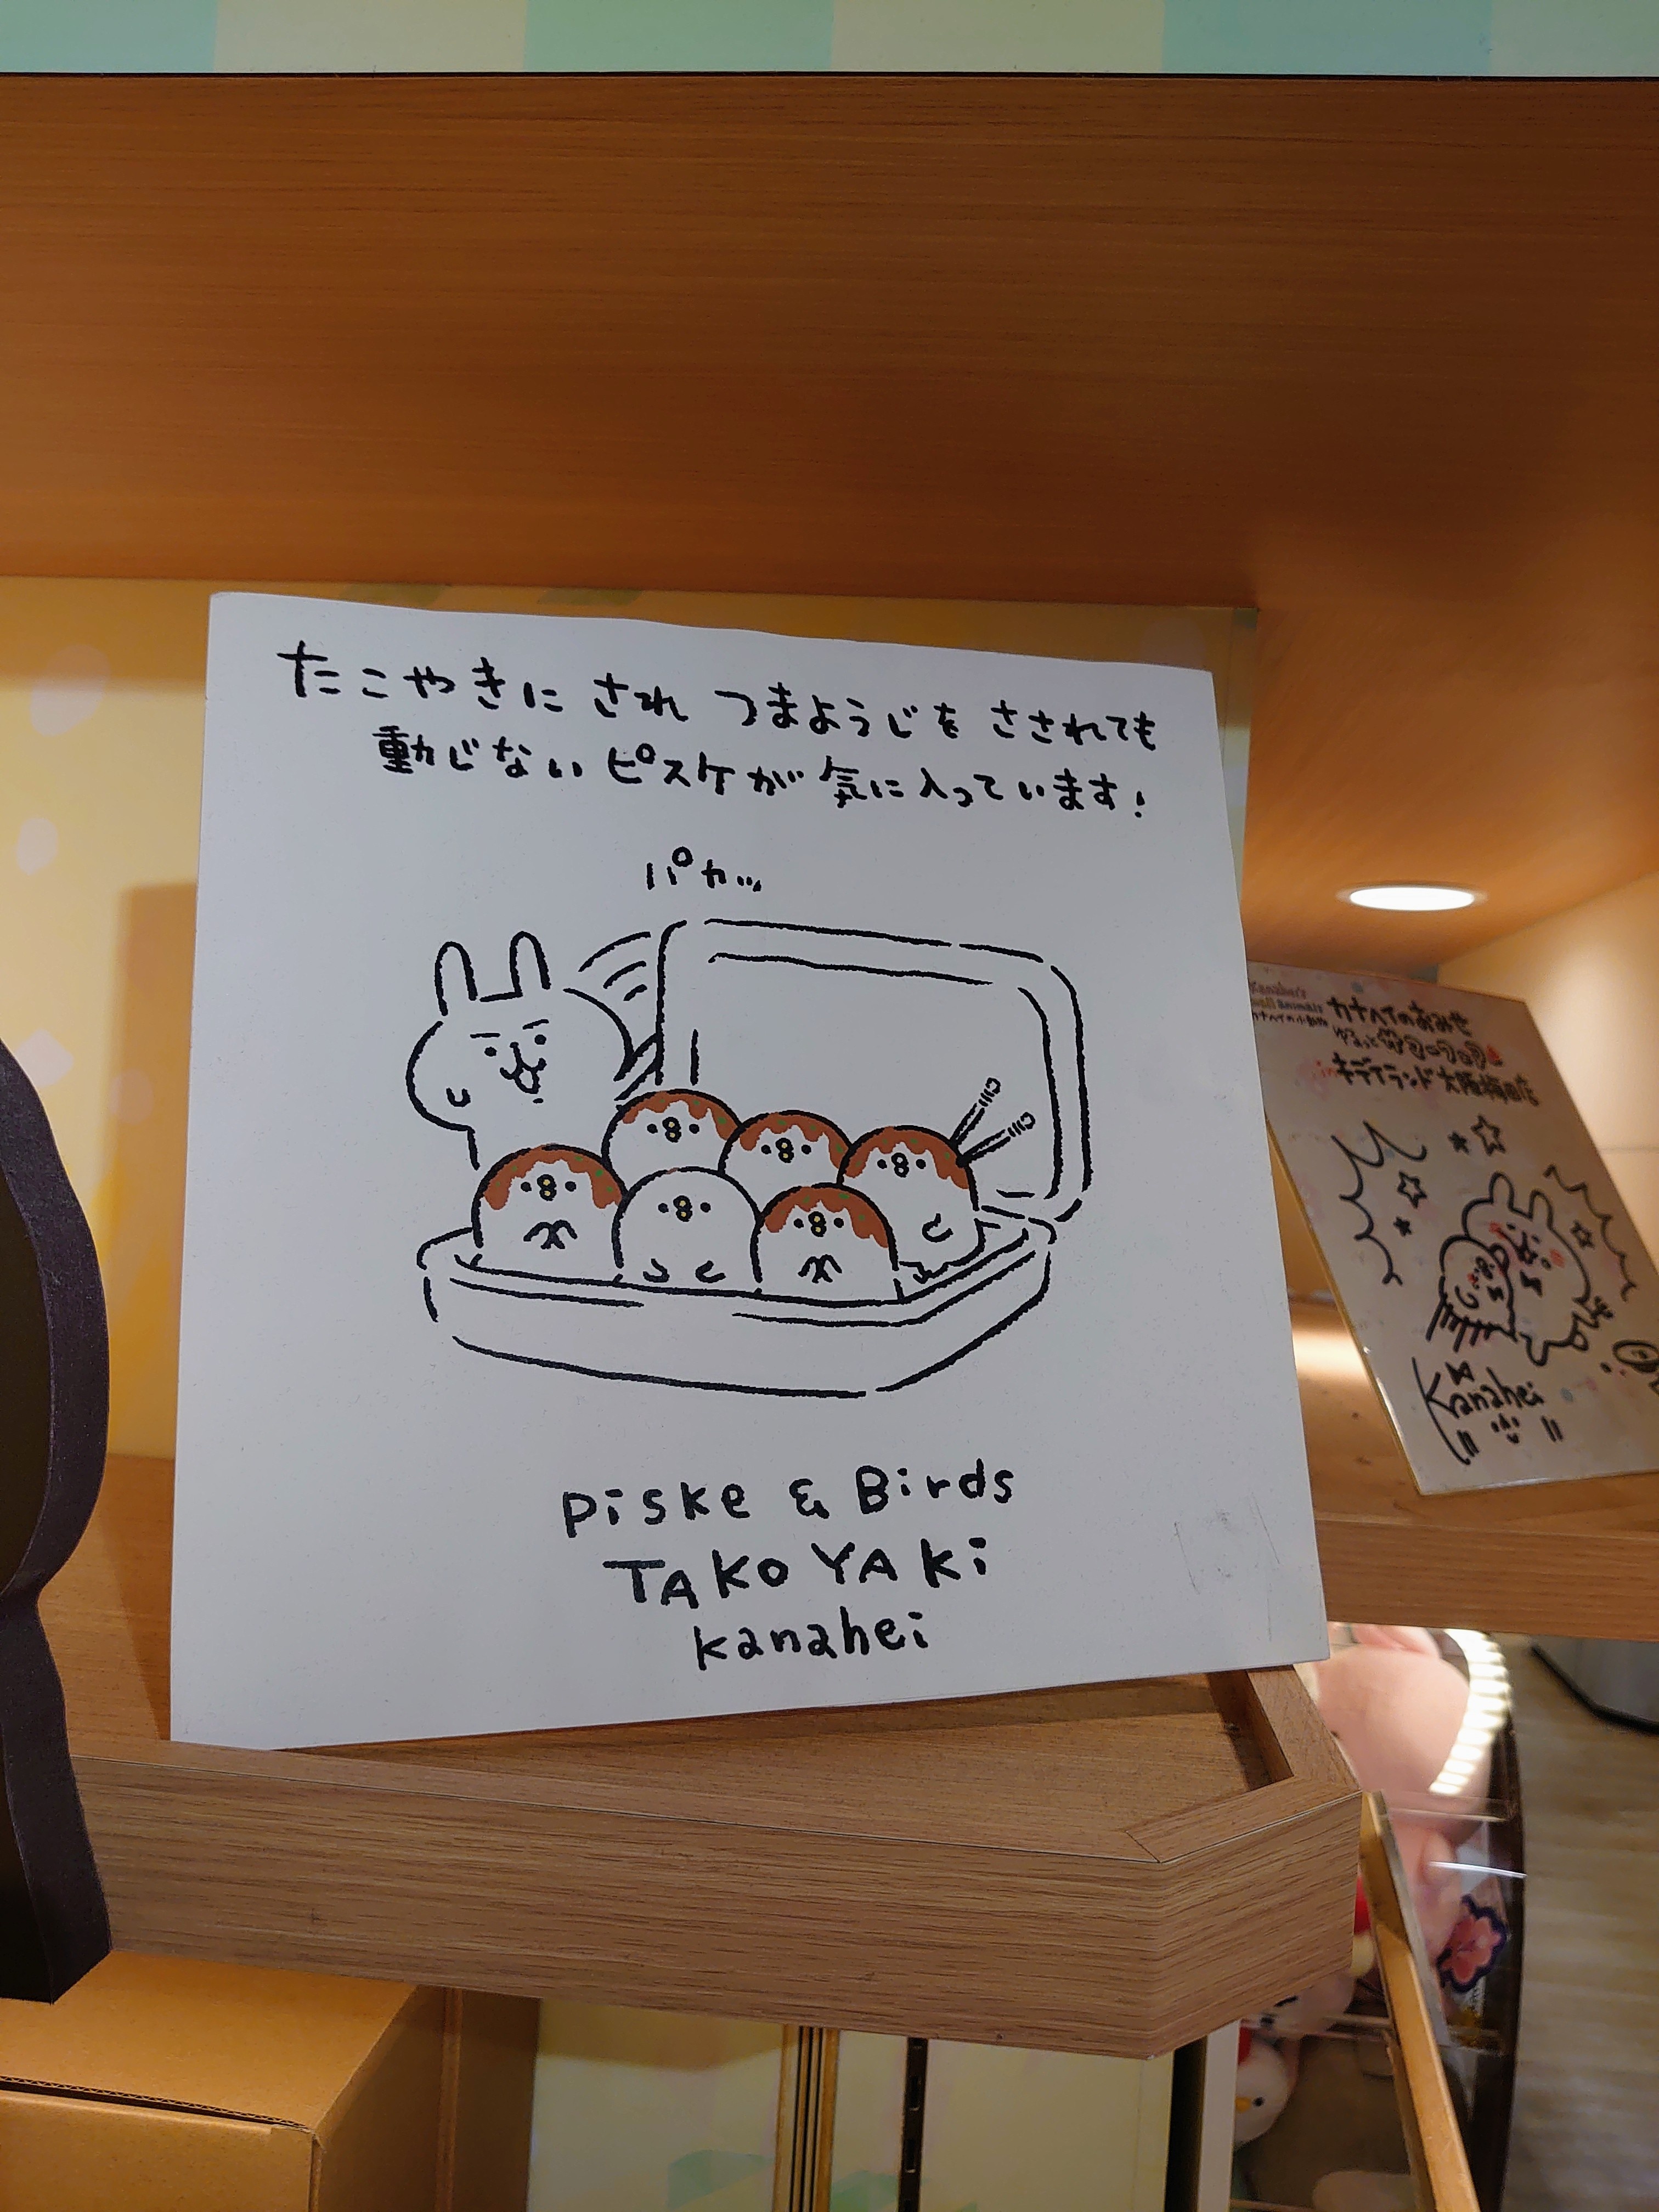 たこやきに され つまようじを さされても
動じない ピスケが 気に入っています!
パカッ
Piske & Birds
TAKOYAKi
kanahei
Kanahei's
Small animals
カナヘイの小動物
カナヘイのおみせ
inキデイランド大阪梅田店
Kanahei